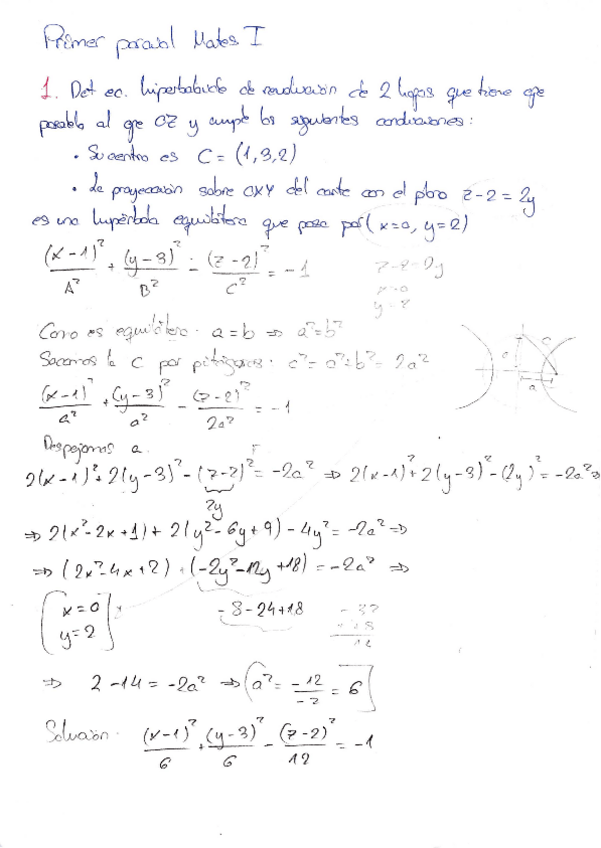 Primer parcial Mates I
1. Det ec. hiperboloide de revolución de 2 hojas que tiene eje
paralelo al eje OZ y cumple las siguientes condiciones:
• Su centro es C = (1,3,2)
• La proyección sobre OXY del corte con el plano z-2 = 2y
es una hipérbola equilátera que pasa por (x=0, y=2)
(x-1)²/A² + (y-3)²/B² - (z-2)²/C² = -1
z-2=2y
x=0
y=2
Como es equilátera: a=b ⇒ a²=b²
Sacamos la C por pitágoras: c²= a²+b²= 2a²
(x-1)²/a² + (y-3)²/a² - (z-2)²/2a² = -1
Despejamos a.
2(x-1)²+2(y-3)²-(z-2)²= -2a² ⇒ 2(x-1)²+2(y-3)²-(2y)²= -2a² ⇒
2y
⇒ 2(x²-2x+1)+ 2(y²-6y+9)-4y²= -2a² ⇒
⇒ (2x²-4x+2) + (-2y²-12y+18)= -2a² ⇒
x=0
y=2
-8-24+18
-32
18
⇒ 2-14= -2a² ⇒ a²= -12/-2 = 6
Solución: (x-1)²/6 + (y-3)²/6 - (z-2)²/12 = -1